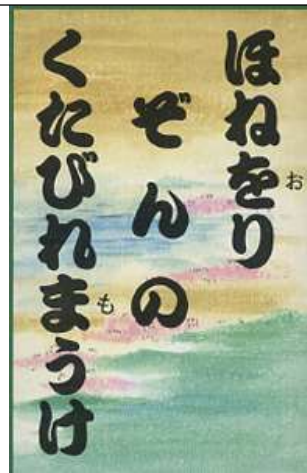 ほねをり
お
ぞんの
くたびれまうけ
も